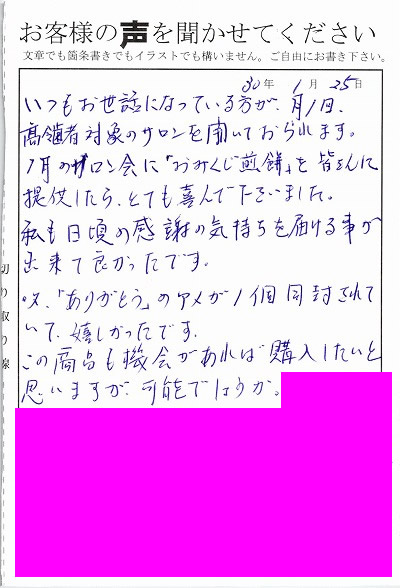 お客様の声を聞かせてください
文章でも箇条書きでもイラストでも構いません。ご自由にお書き下さい。
30年 1月 25日
いつもお世話になっている方が、月1回、
高齢者対象のサロンを開いておられます。
1月のサロン会に「おみくじ煎餅」を皆さんに
提供したら、とても喜んで下さいました。
私も日頃の感謝の気持ちを届ける事が
出来て良かったです。
又、「ありがとう」のアメが1個同封されて
いて、嬉しかったです。
この商品も機会があれば購入したいと
思いますが、可能でしょうか。
切り取り線